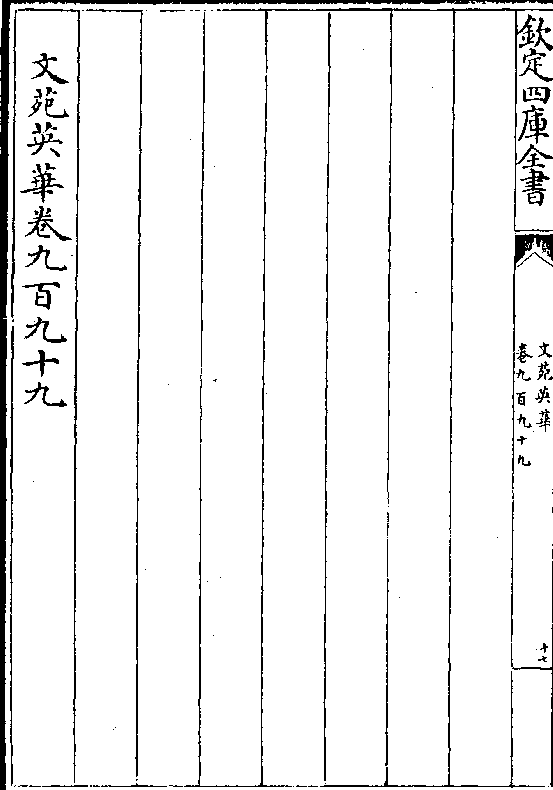 欽定四庫全書
文苑英華
卷九百九十九
十七
文苑英華卷九百九十九